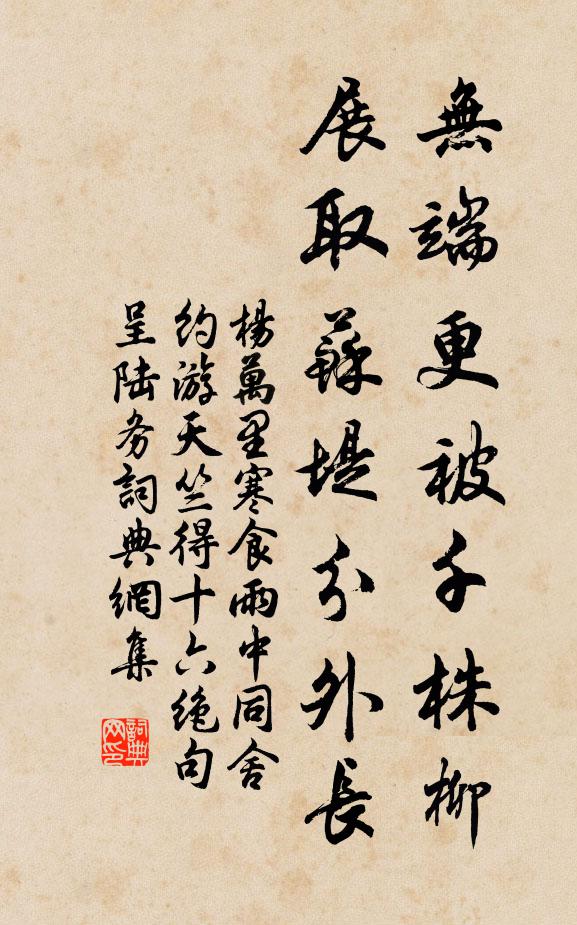 無端更被千株柳
展取蘇堤分外長
楊萬里寒食雨中同舍
約游天竺得十六絕句
呈陆务詞典網集
詞典网印